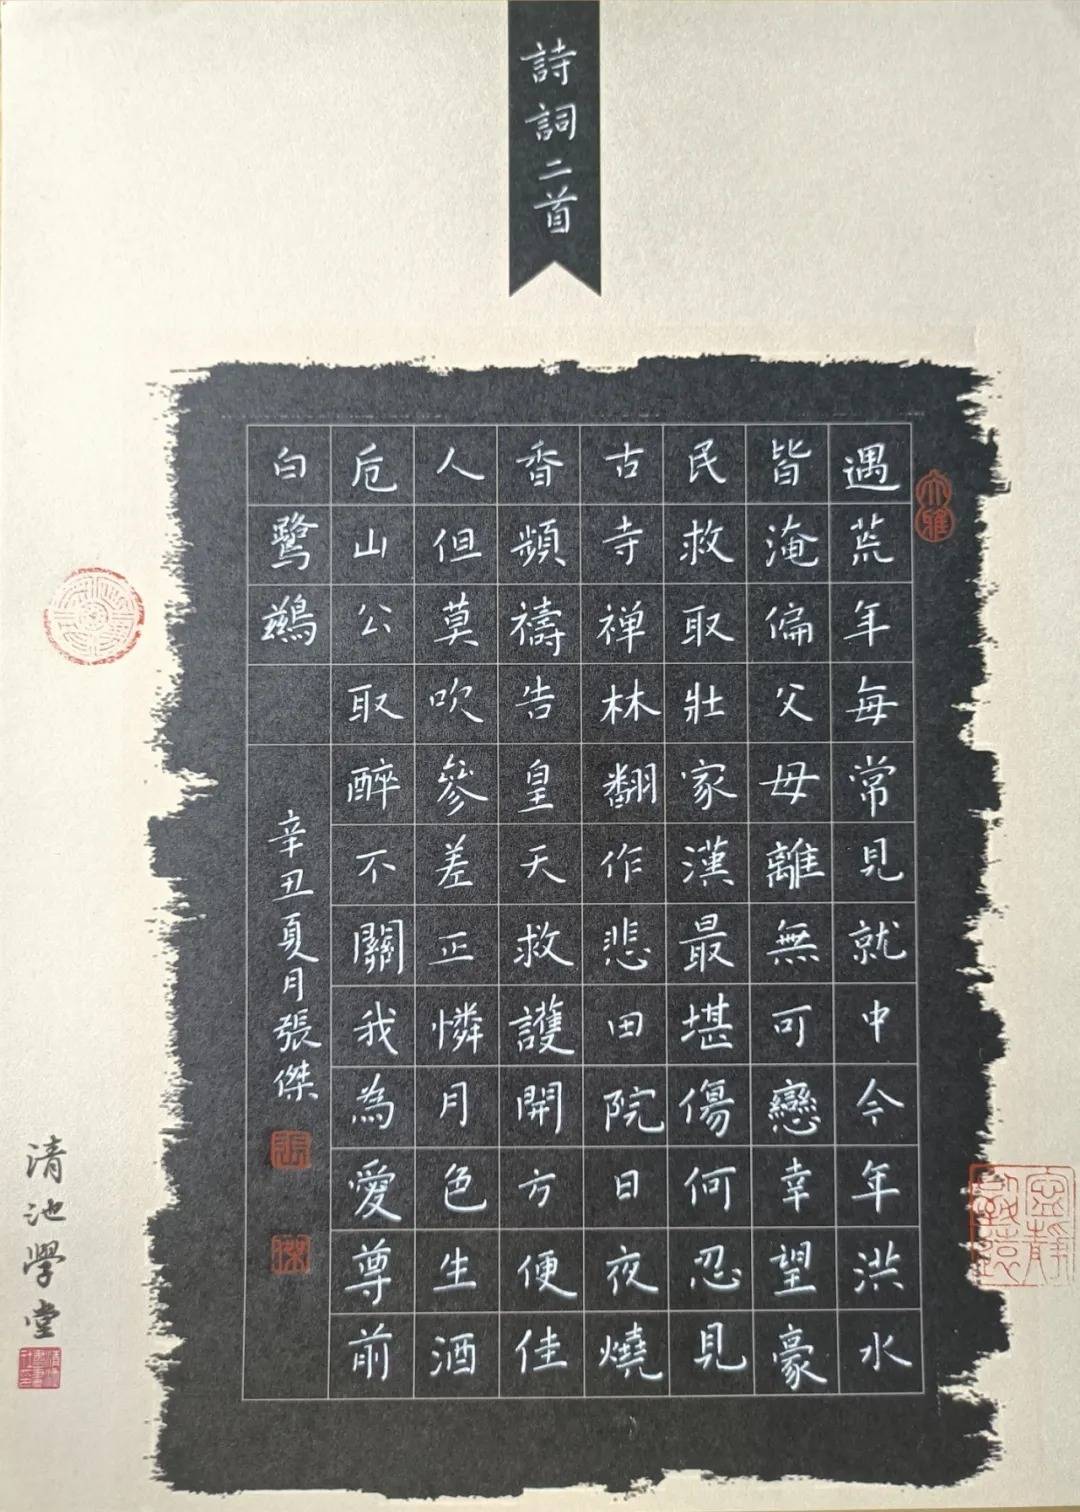 詩詞二首
遇荒年每常見就中今年洪水
皆淹偏父母離無可戀幸望豪
民救取壯家漢最堪傷何忍見
古寺禅林翻作悲田院日夜燒
香頻禱告皇天救護開方便佳
人但莫吹參差正憐月色生酒
卮山公取醉不關我為愛尊前
白鷺鷀
辛丑夏月張傑
張
傑
清池學堂
大雅
寧靜致遠